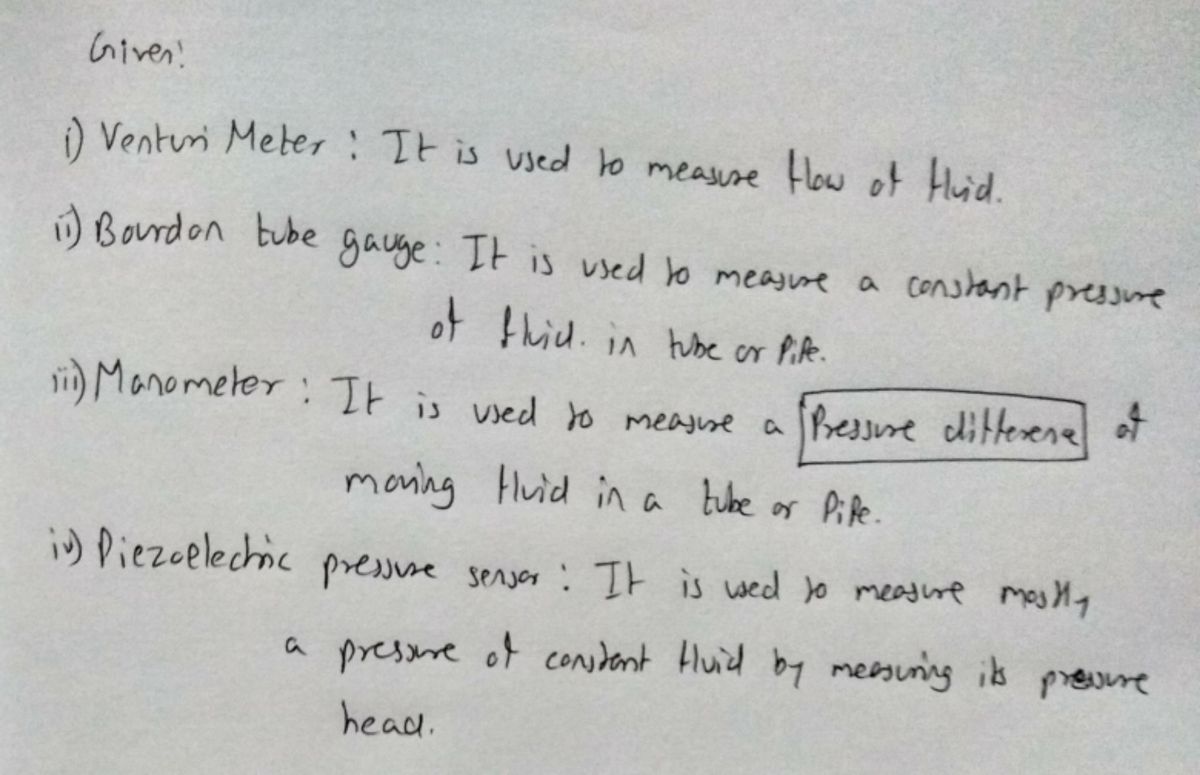 Given:
i) Venturi Meter : It is used to measure flow of fluid.
ii) Bourdon tube gauge: It is used to measure a constant pressure
of fluid. in tube or Pipe.
iii) Manometer : It is used to measure a Pressure difference of
moving fluid in a tube or Pipe.
iv) Piezoelectric pressure sensor : It is used to measure mostly
a pressure of constant fluid by measuring its pressure
head.